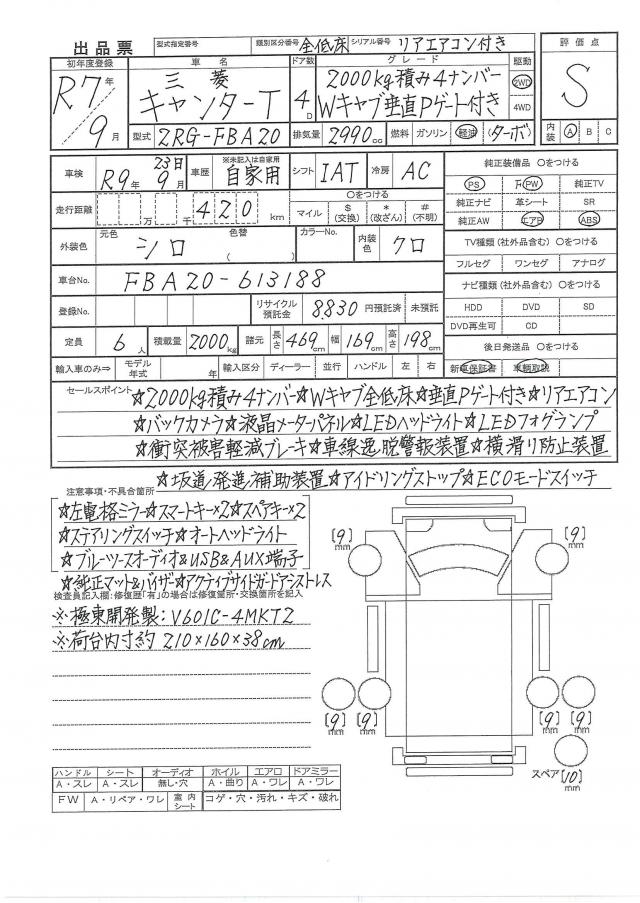 出品票 型式指定番号 類別区分番号 全低床 シリアル番号 リアエアコン付き 評価点
初年度登録 車名 ドア数 グレード 駆動 S
R7年 三菱 4D 2000kg積み4ナンバー 2WD
9月 キャンターT Wキャブ垂直Pゲート付き 4WD
型式 2RG-FBA20 排気量 2990cc 燃料 ガソリン 軽油 (ターボ) 内装 A B C
車検 R9年 23日 9月 車歴 ※未記入は自家用 自家用 シフト IAT 冷房 AC 純正装備品 〇をつける
PS PW 純正TV
走行距離 万 千 420 km 〇をつける 純正ナビ 革シート SR
マイル $(交換) *(改ざん) #(不明) 純正AW エアB ABS
外装色 元色 シロ 色替 ( ) カラーNo. 内装色 クロ TV種類(社外品含む) 〇をつける
フルセグ ワンセグ アナログ
車台No. FBA20-613188 ナビ種類(社外品含む) 〇をつける
登録No. リサイクル預託金 8,830 円預託済 未預託 HDD DVD SD
DVD再生可 CD
定員 6人 積載量 2000kg 諸元 長さ 469cm 幅 169cm 高さ 198cm 後日発送品 〇をつける
輸入車のみ⇒ モデル年式 年 輸入区分 ディーラー 並行 ハンドル 左 右 新車保証書 車輌取説
セールスポイント ☆2000kg積み4ナンバー☆Wキャブ全低床☆垂直Pゲート付き☆リアエアコン
☆バックカメラ☆液晶メーターパネル☆LEDヘッドライト☆LEDフォグランプ
☆衝突被害軽減ブレーキ☆車線逸脱警報装置☆横滑り防止装置
☆坂道発進補助装置☆アイドリングストップ☆ECOモードスイッチ
注意事項・不具合箇所
☆左電格ミラー☆スマートキー×2☆スペアキー×2
☆ステアリングスイッチ☆オートヘッドライト
☆ブルーツースオーディオ&USB&AUX端子
☆純正マット&バイザー☆アクティブサイドガードアシストレス
検査員記入欄:修復歴「有」の場合は修復箇所・交換箇所を記入
※極東開発製:V601C-4MKT2
※荷台内寸約 210×160×38cm
[9]mm [9]mm
[9]mm [9]mm [9]mm [9]mm
スペア[10]mm
ハンドル シート オーディオ ホイル エアロ ドアミラー
A・スレ A・スレ 無し・穴 A・曲り A・ワレ A・ワレ
FW A・リペア・ワレ 室内シート コゲ・穴・汚れ・キズ・破れ